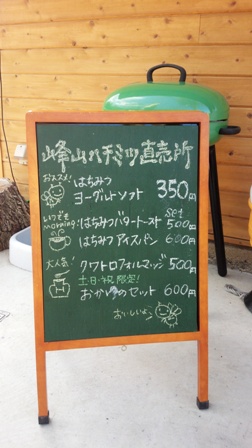 峰山ハチミツ直売所
おススメ! はちみつ
ヨーグルトソフト 350円
いつでも set
Morning! はちみつバタートースト 500円
はちみつアイスパン 600円
大人気! クワトロフォルマッジ 500円
土・日・祝 限定!
おかゆのセット 600円
おいしいよ♪